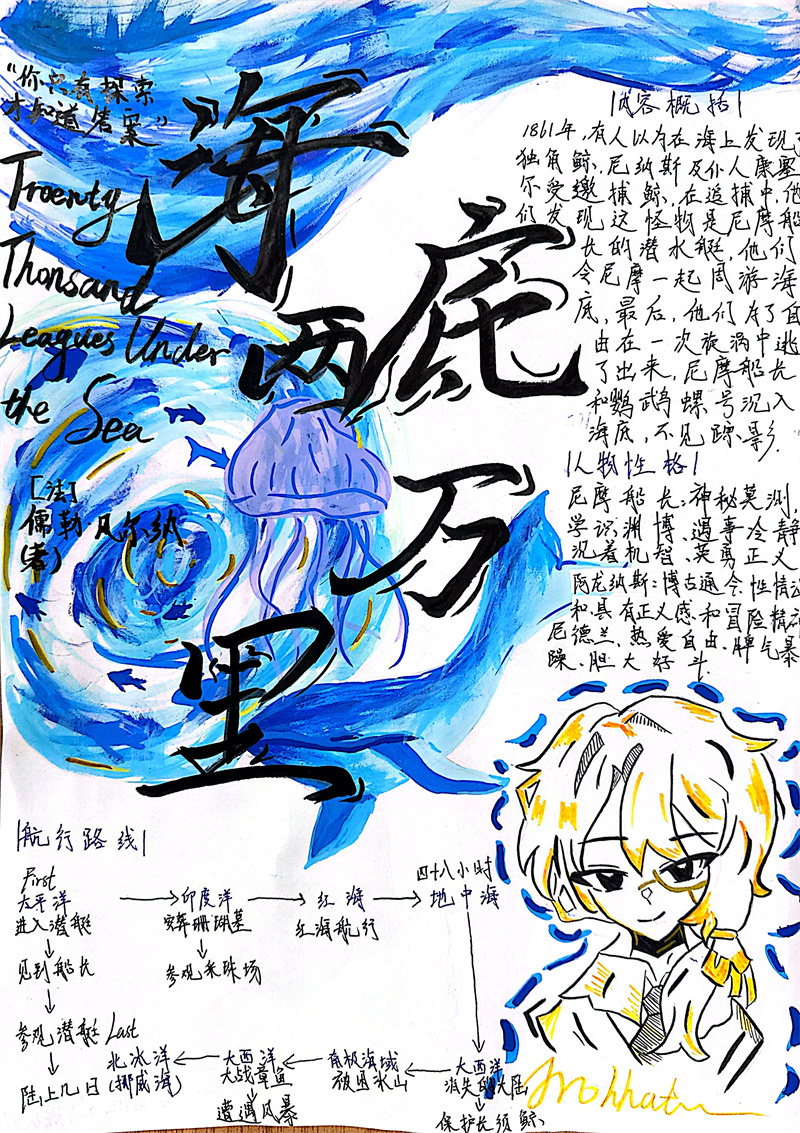 “你只有探索
才知道答案”
海底两万里
Treenty
Thonsand
Leagues Under
the Sea
[法]
儒勒·凡尔纳
(著)
内容概括
1861年,有人以为在海上发现了
独角鲸,尼纳斯及仆人康塞
尔受邀捕鲸,在追捕中,他
们发现这怪物是尼摩船
长的潜水艇,他们
令尼摩一起周游海
底,最后,他们为了自
由在一次旋涡中逃
了出来,尼摩船长
和鹦鹉螺号沉入
海底,不见踪影.
人物性格
尼摩船长:神秘莫测,
学识渊博、遇事冷静
沉着机智、英勇正义
阿龙纳斯:博古通今,性情
和,具有正义感和冒险精
尼德兰、热爱自由、脾气暴
躁、胆大好斗.
航行路线
First
太平洋
进入潜艇
见到船长
参观潜艇
陆上几日
印度洋
安葬珊瑚墓
参观采珠场
红海
红海航行
四十八小时
地中海
大西洋
消失的大陆
保护长须鲸
南极海域
被困冰山
大西洋
大战章鱼
遭遇风暴
Last
北冰洋
(挪威海)